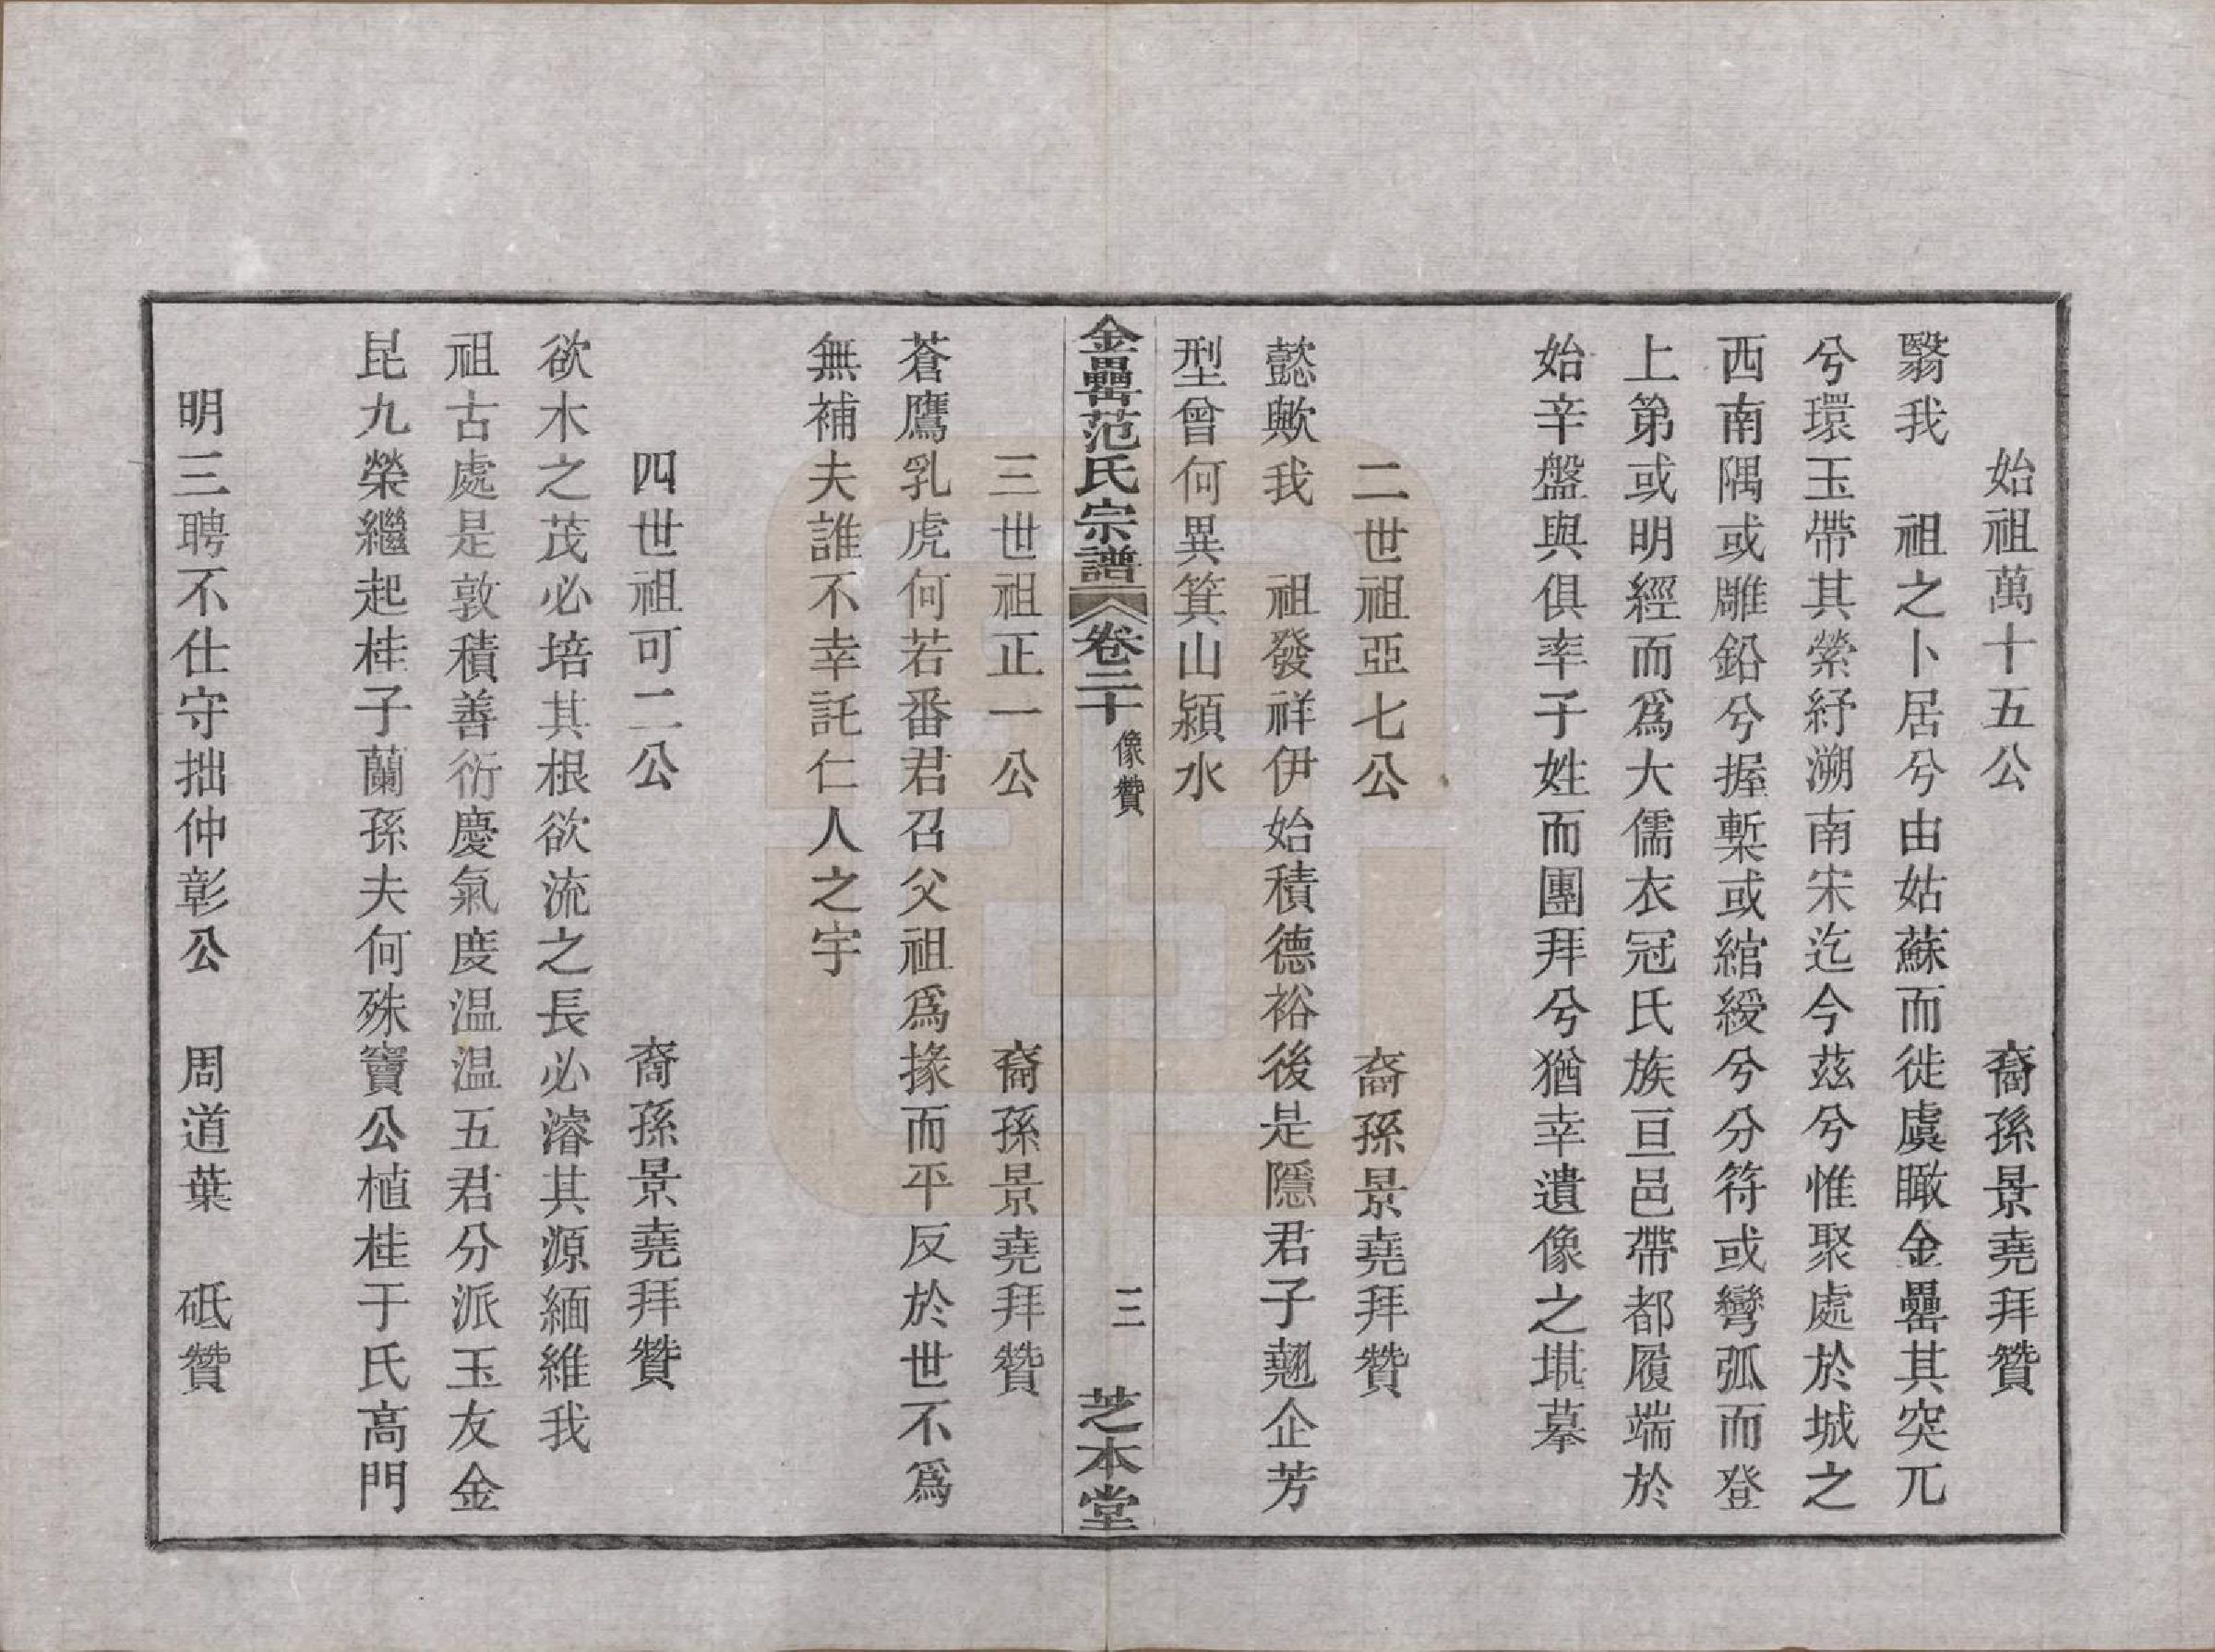 始祖萬十五公　裔孫景堯拜贊
翳我　祖之卜居兮由姑蘇而徙虞瞰金罍其突兀
兮環玉帶其縈紆溯南宋迄今茲兮惟聚處於城之
西南隅或雕鉛兮握槧或綰綬兮分符或彎弧而登
上第或明經而爲大儒衣冠氏族亘邑帶都履端於
始辛盤與俱率子姓而團拜兮猶幸遺像之堪摹
二世祖亞七公　裔孫景堯拜贊
懿歟我　祖發祥伊始積德裕後是隱君子翹企芳
型曾何異箕山潁水
金罍范氏宗譜　卷二十　像贊　三　芝本堂
三世祖正一公　裔孫景堯拜贊
蒼鷹乳虎何若番君召父祖爲掾而平反於世不爲
無補夫誰不幸託仁人之宇
四世祖可二公　裔孫景堯拜贊
欲木之茂必培其根欲流之長必濬其源緬維我
祖古處是敦積善衍慶氣度温温五君分派玉友金
昆九榮繼起桂子蘭孫夫何殊竇公植桂于氏高門
明三聘不仕守拙仲彰公　周道葉　砥贊